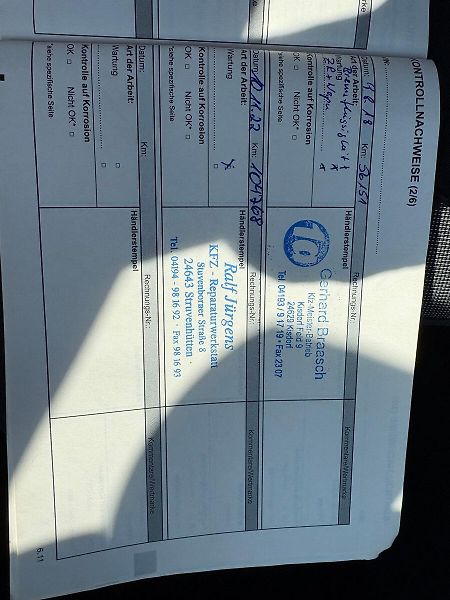 KONTROLLNACHWEISE (2/6)
Datum:
Km: 56151
Art der Arbeit:
Wartung
Kontrolle auf Korrosion
OK □ Nicht OK* □
*siehe spezifische Seite
Händlerstempel
Gerhard Braasch
Kfz.-Meister-Betrieb
Kisdorf Feld 9
24629 Kisdorf
Tel. 04193 / 9 17 19 · Fax 23 07
Rechnungs-Nr.:
Kommentare/Vermerke
Datum: 10.11.22 Km: 104768
Art der Arbeit:
Wartung
Kontrolle auf Korrosion
OK □ Nicht OK* □
*siehe spezifische Seite
Händlerstempel
Ralf Jürgens
KFZ - Reparaturwerkstatt
Stuvenborner Straße 8
24643 Struvenhütten
Tel. 04194 - 98 16 92 · Fax 98 16 93
Rechnungs-Nr.:
Kommentare/Vermerke
Datum: Km:
Art der Arbeit:
Wartung □
Kontrolle auf Korrosion
OK □ Nicht OK* □
*siehe spezifische Seite
Händlerstempel
Rechnungs-Nr.:
Kommentare/Vermerke
6.11